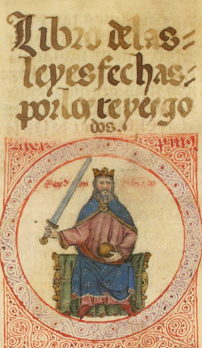 Libro de las=
leyes fechas=
por los reyes go
dos.